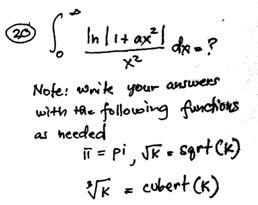 20 ∫₀^∞ ln|1+ax²| / x² dx = ?
Note: write your answers
with the following functions
as needed
π = pi, √K = sqrt(K)
∛K = cubert(K)